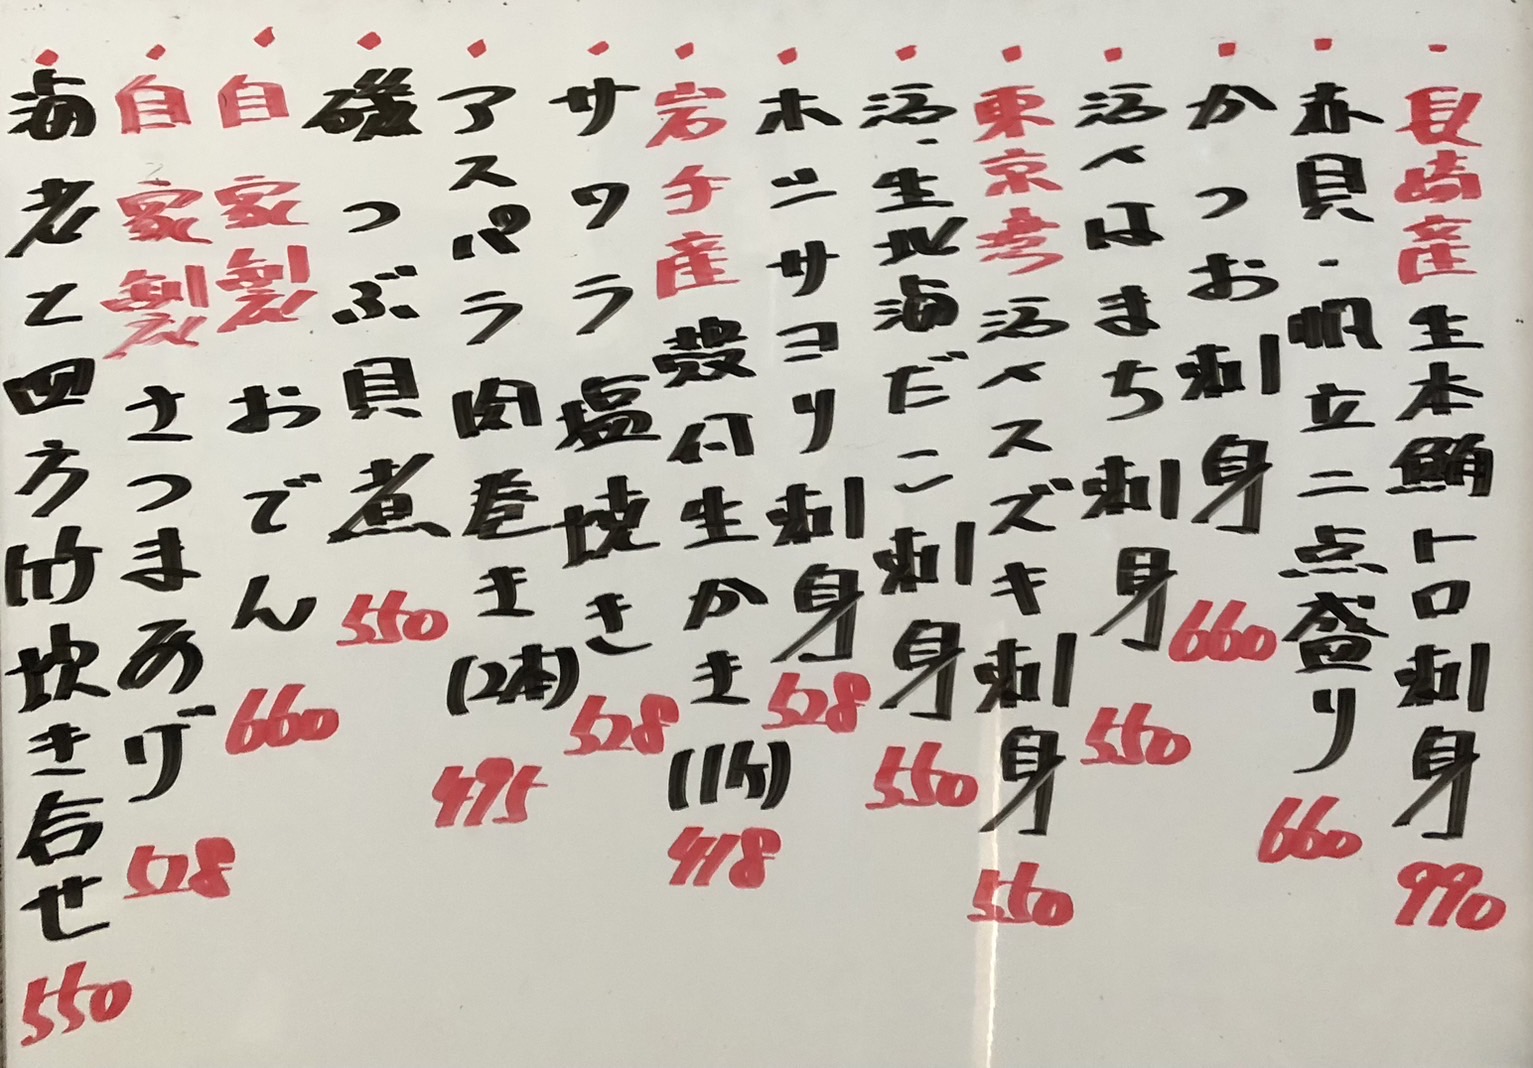 ・長崎産生本鮪トロ刺身 990
・赤貝・帆立二点盛り 660
・かつお刺身 660
・活〆はまち刺身 550
・東京湾活〆スズキ刺身 550
・活・生地海だこ刺身 550
・ホンサヨリ刺身 528
・岩手産殻付生かき(1ケ) 418
・サワラ塩焼き 528
・アスパラ肉巻き(2本) 495
・磯つぶ貝煮 550
・自家製おでん 660
・自家製さつまあげ 528
・海老と四方竹炊き合せ 550